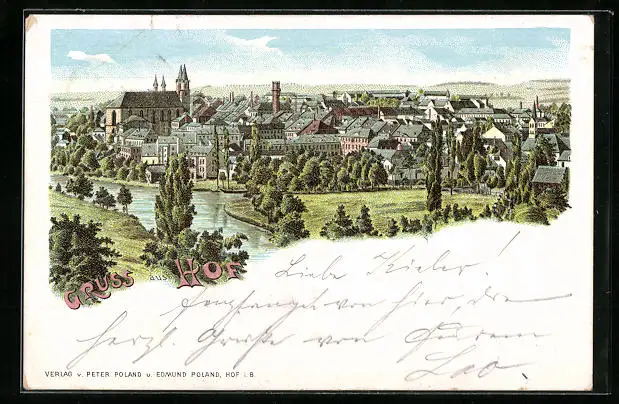 GRUSS aus HOF
Liebe Kieler!
Empfanget von hier, die
herzl. Grüße von Eurem
Leo.
VERLAG v. PETER POLAND u. EDMUND POLAND, HOF i. B.